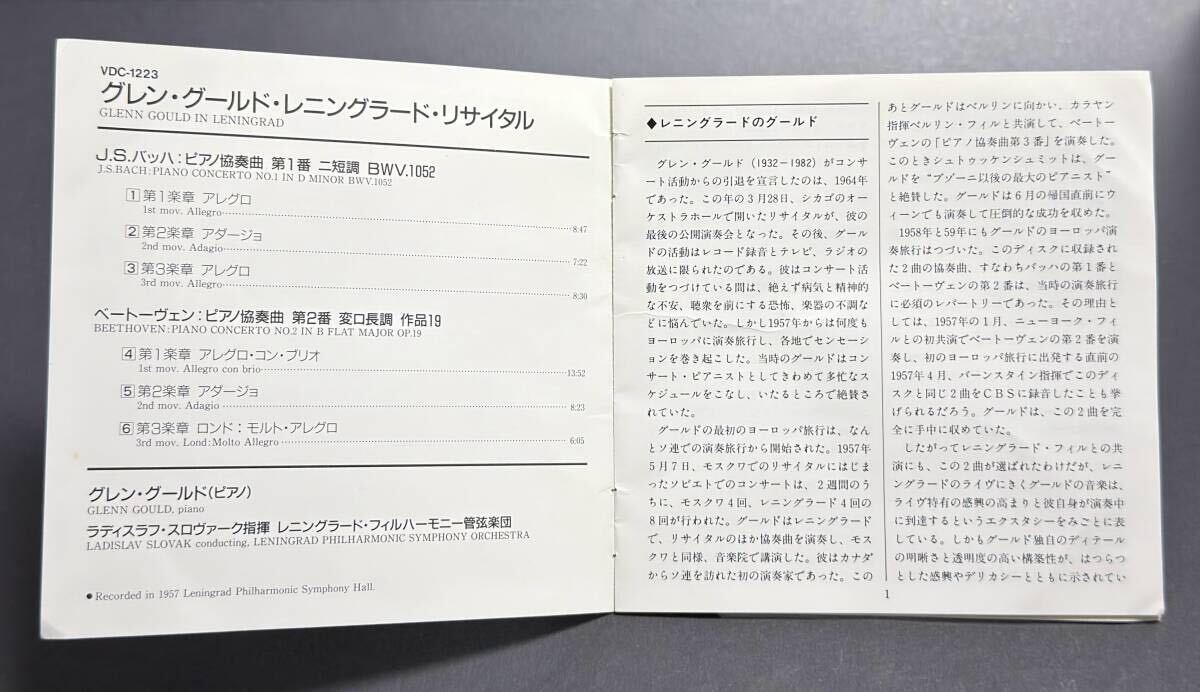 VDC-1223
グレン・グールド・レニングラード・リサイタル
GLENN GOULD IN LENINGRAD
J.S.バッハ：ピアノ協奏曲 第1番 ニ短調 BWV.1052
J.S.BACH:PIANO CONCERTO NO.1 IN D MINOR BWV.1052
1 第1楽章 アレグロ
1st mov. Allegro 8:47
2 第2楽章 アダージョ
2nd mov. Adagio 7:22
3 第3楽章 アレグロ
3rd mov. Allegro 8:30
ベートーヴェン：ピアノ協奏曲 第2番 変ロ長調 作品19
BEETHOVEN:PIANO CONCERTO NO.2 IN B FLAT MAJOR OP.19
4 第1楽章 アレグロ・コン・ブリオ
1st mov. Allegro con brio 13:52
5 第2楽章 アダージョ
2nd mov. Adagio 8:23
6 第3楽章 ロンド：モルト・アレグロ
3rd mov. Lond:Molto Allegro 6:05
グレン・グールド(ピアノ)
GLENN GOULD, piano
ラディスラフ・スロヴァーク指揮 レニングラード・フィルハーモニー管弦楽団
LADISLAV SLOVAK conducting, LENINGRAD PHILHARMONIC SYMPHONY ORCHESTRA
● Recorded in 1957 Leningrad Philharmonic Symphony Hall.
◆レニングラードのグールド
グレン・グールド（1932−1982）がコンサ
ート活動からの引退を宣言したのは、1964年
であった。この年の3月28日、シカゴのオー
ケストラホールで開いたリサイタルが、彼の
最後の公開演奏会となった。その後、グール
ドの活動はレコード録音とテレビ、ラジオの
放送に限られたのである。彼はコンサート活
動をつづけている間は、絶えず病気と精神的
な不安、聴衆を前にする恐怖、楽器の不調な
どに悩んでいた。しかし1957年からは何度も
ヨーロッパに演奏旅行し、各地でセンセーシ
ョンを巻き起こした。当時のグールドはコン
サート・ピアニストとしてきわめて多忙なス
ケジュールをこなし、いたるところで絶賛さ
れていた。
グールドの最初のヨーロッパ旅行は、なん
とソ連での演奏旅行から開始された。1957年
5月7日、モスクワでのリサイタルにはじま
ったソビエトでのコンサートは、2週間のう
ちに、モスクワ4回、レニングラード4回の
8回が行われた。グールドはレニングラード
で、リサイタルのほか協奏曲を演奏し、モス
クワと同様、音楽院で講演した。彼はカナダ
からソ連を訪れた初の演奏家であった。この
あとグールドはベルリンに向かい、カラヤン
指揮ベルリン・フィルと共演して、ベートー
ヴェンの「ピアノ協奏曲第3番」を演奏した。
このときシュトゥッケンシュミットは、グー
ルドを“ブゾーニ以後の最大のピアニスト”
と絶賛した。グールドは6月の帰国直前にウ
ィーンでも演奏して圧倒的な成功を収めた。
1958年と59年にもグールドのヨーロッパ演
奏旅行はつづいた。このディスクに収録され
た2曲の協奏曲、すなわちバッハの第1番と
ベートーヴェンの第2番は、当時の演奏旅行
に必須のレパートリーであった。その理由と
しては、1957年の1月、ニューヨーク・フィ
ルとの初共演でベートーヴェンの第2番を演
奏し、初のヨーロッパ旅行に出発する直前の
1957年4月、バーンスタイン指揮でこのディ
スクと同じ2曲をCBSに録音したことも挙
げられるだろう。グールドは、この2曲を完
全に手中に収めていた。
したがってレニングラード・フィルとの共
演にも、この2曲が選ばれたわけだが、レニ
ングラードのライヴにきくグールドの音楽は、
ライヴ特有の感興の高まりと彼自身が演奏中
に到達するというエクスタシーをみごとに表
している。しかもグールド独自のディテール
の明晰さと透明度の高い構築性が、はつらつ
とした感興やデリカシーとともに示されてい
1